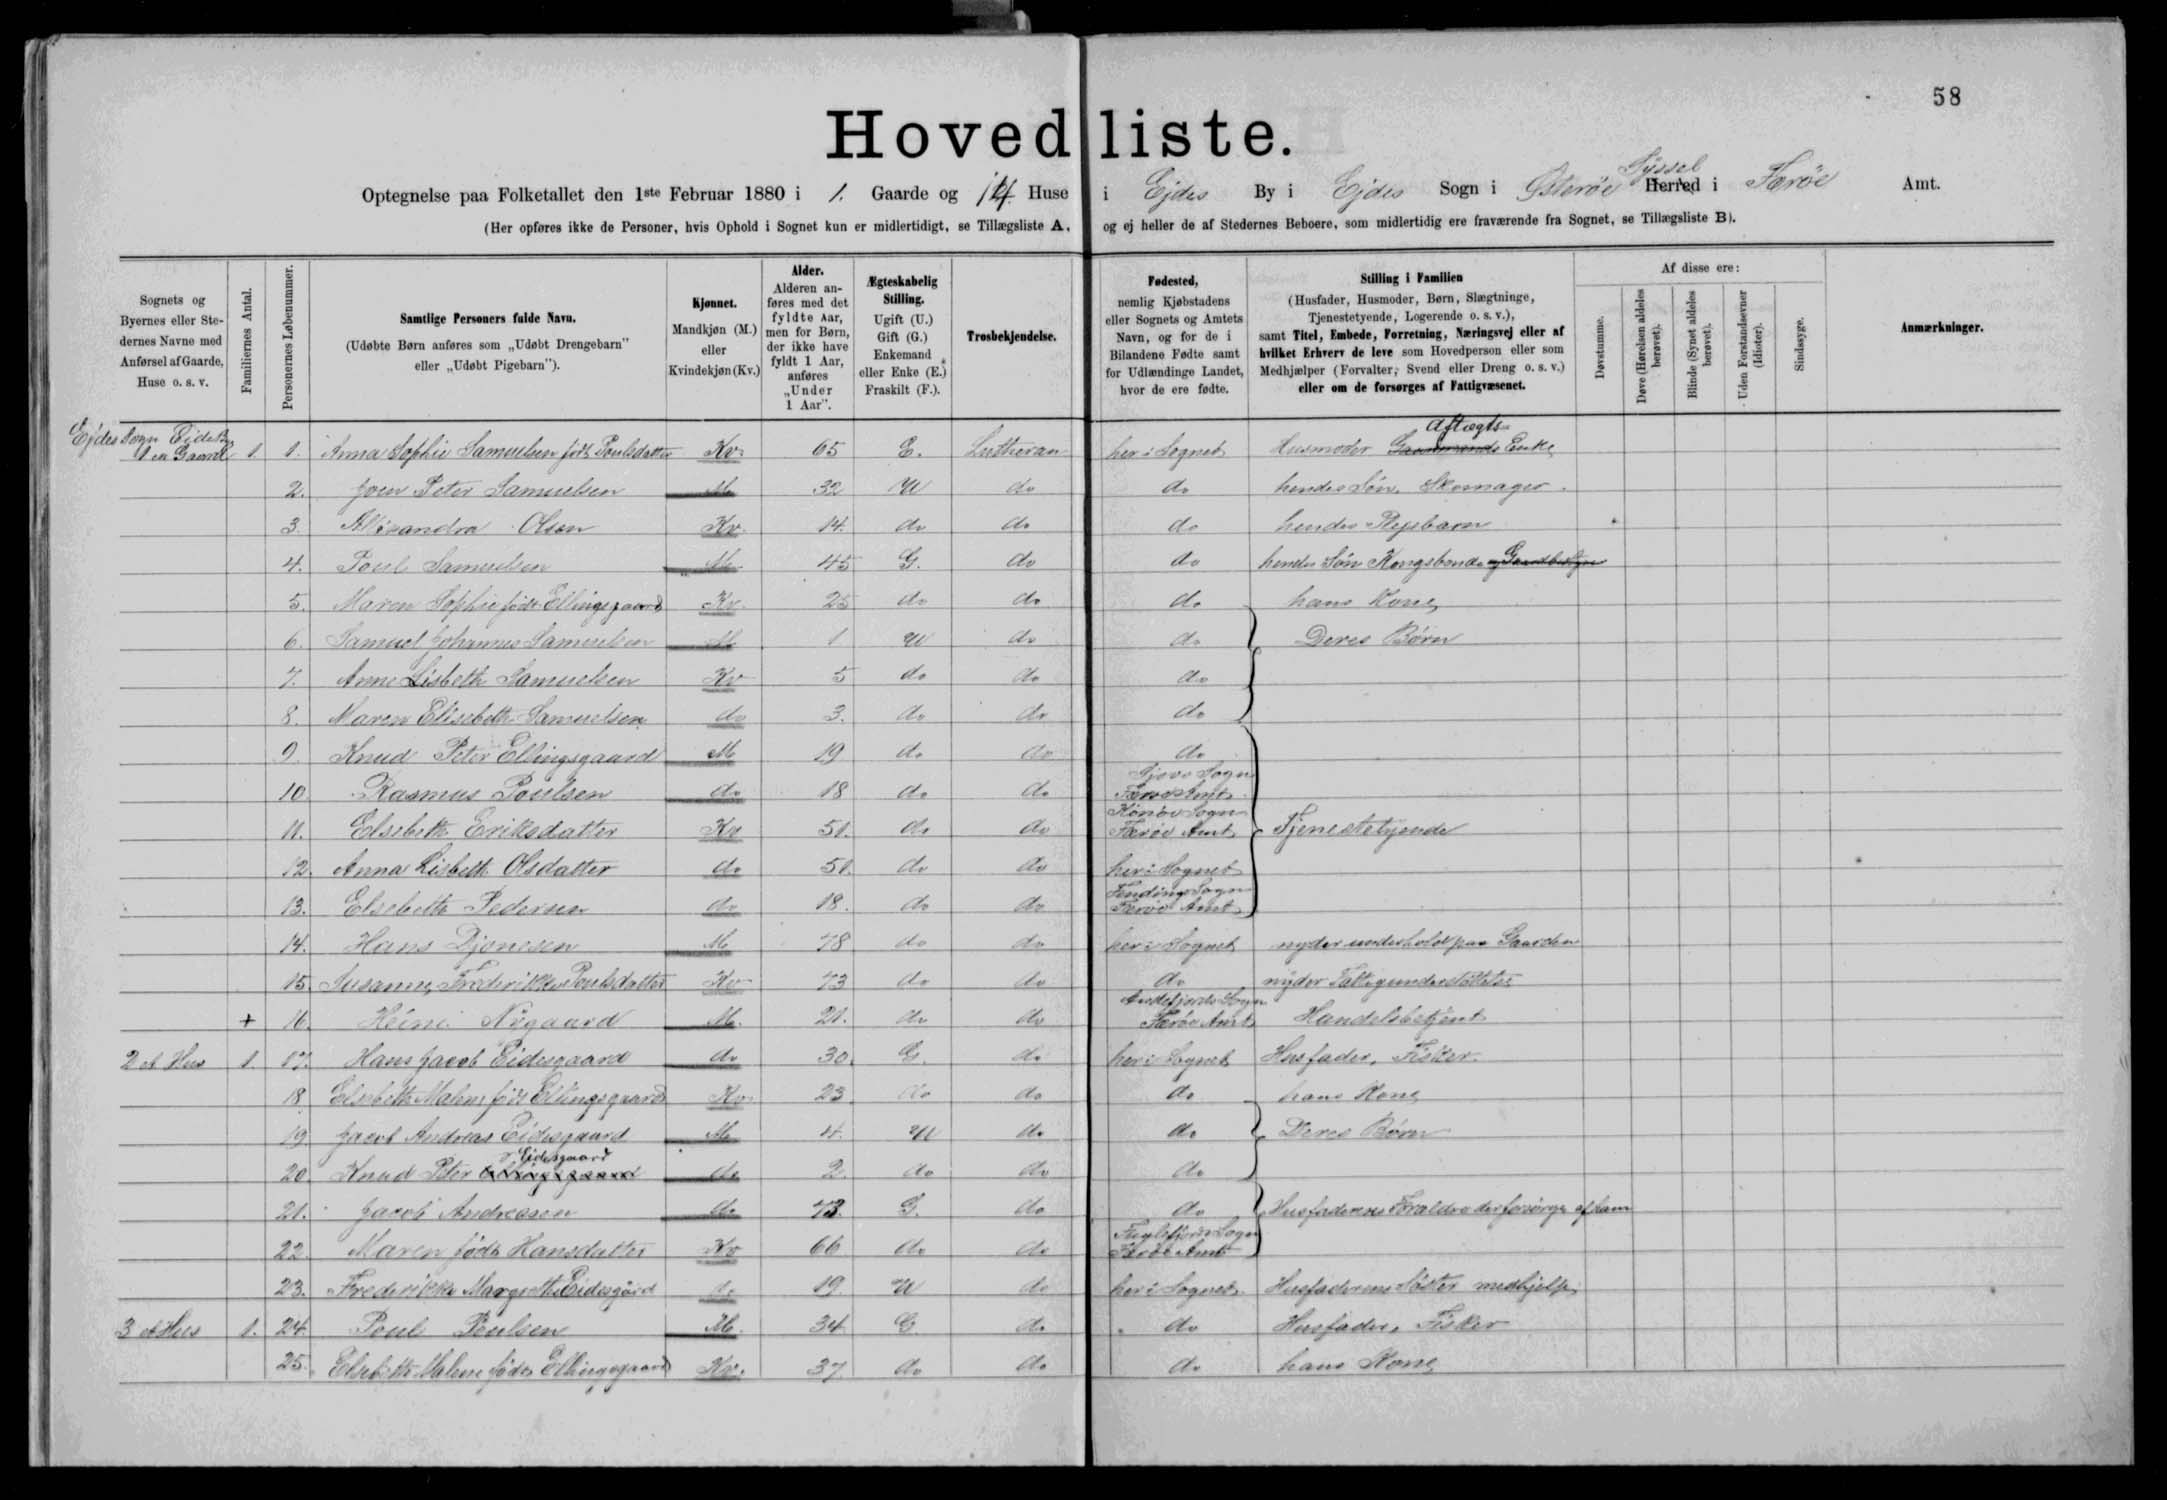 58
Hovedliste.
Optegnelse paa Folketallet den 1ste Februar 1880 i 1. Gaarde og 14 Huse i Ejdes By i Ejdes Sogn i Østerøe Syssel Herred i Færøe Amt.
(Her opføres ikke de Personer, hvis Ophold i Sognet kun er midlertidigt, se Tillægsliste A, og ej heller de af Stedernes Beboere, som midlertidig ere fraværende fra Sognet, se Tillægsliste B).
Sognets og Byernes eller Stedernes Navne med Anførsel af Gaarde, Huse o. s. v.
Familiernes Antal.
Personernes Løbenummer.
Samtlige Personers fulde Navn.
(Udøbte Børn anføres som „Udøbt Drengebarn" eller „Udøbt Pigebarn").
Kjønnet.
Mandkjøn (M.) eller Kvindekjøn (Kv.)
Alder.
Alderen anføres med det fyldte Aar, men for Børn, der ikke have fyldt 1 Aar, anføres „Under 1 Aar".
Ægteskabelig Stilling.
Ugift (U.) Gift (G.) Enkemand eller Enke (E.) Fraskilt (F.).
Trosbekjendelse.
Fødested,
nemlig Kjøbstadens eller Sognets og Amtets Navn, og for de i Bilandene Fødte samt for Udlændinge Landet, hvor de ere fødte.
Stilling i Familien
(Husfader, Husmoder, Børn, Slægtninge, Tjenestetyende, Logerende o. s. v.), samt Titel, Embede, Forretning, Næringsvej eller af hvilket Erhverv de leve som Hovedperson eller som Medhjælper (Forvalter, Svend eller Dreng o. s. v.) eller om de forsørges af Fattigvæsenet.
Af disse ere:
Døvstumme.
Døve (Hørelsen aldeles berøvet).
Blinde (Synet aldeles berøvet).
Uden Forstandsevner (Idioter).
Sindssyge.
Anmærkninger.
Ejdes Sogn Eide By
1 en Gaard 1. 1. Anna Sophie Samuelsen født Poulsdatter Kv. 65 E. Lutheran her i Sognet Husmoder Aftægts Enke
2. Joen Peter Samuelsen M 32 U do do hendes Søn, Skomager.
3. Alexandra Olsen Kv. 14. do do do hendes Plejebarn
4. Poul Samuelsen M. 45 G. do do hendes Søn Kongsbonde
5. Maren Sophie født Ellingsgaard Kv. 25 do do do hans Kone
6. Samuel Johannes Samuelsen M 1 U do do Deres Børn
7. Anne Lisbeth Samuelsen Kv 5 do do do
8. Maren Elisebeth Samuelsen do 3. do do do
9. Knud Peter Ellingsgaard M 19 do do do
10. Rasmus Poulsen do 18 do do Sogn Færøe Amt
11. Elsebeth Eriksdatter Kv 51. do do Sogn Færøe Amt Tjenestetyende
12. Anna Lisbeth Olsdatter do 51. do do her i Sognet
13. Elsebeth Pedersen do 18. do do Sogn Færøe Amt
14. Hans Djonesen M 78 do do her i Sognet nyder underhold paa Gaarden
15. Susanne Frederikke Poulsdatter Kv 73 do do do nyder Fattigunderstøttelse
+ 16. Heini Nygaard M. 21. do do Andefjords Sogn Færøe Amt Handelsbetjent
2 et Hus 1. 17. Hans Jacob Eidesgaard do 30. G. do her i Sognet Husfader, Fisker.
18 Elsebeth Malene født Ellingsgaard Kv. 23 do do do hans Kone
19 Jacob Andreas Eidesgaard M 4. U do do Deres Børn
20. Knud Peter Eidesgaard do 2 do do do
21. Jacob Andreasen do 73. G. do do Husfaderens Forældre der forsørges af ham
22. Maren født Hansdatter Kv 66 do do Fuglefjords Sogn Færøe Amt
23. Frederikke Margrethe Eidesgård do 19. U do her i Sognet. Husfaderens Søster medhjelp
3 et Hus 1. 24. Poul Poulsen M. 34 G do do Husfader, Fisker
25. Elsebeth Malene født Ellingsgaard Kv. 37 do do do hans Kone